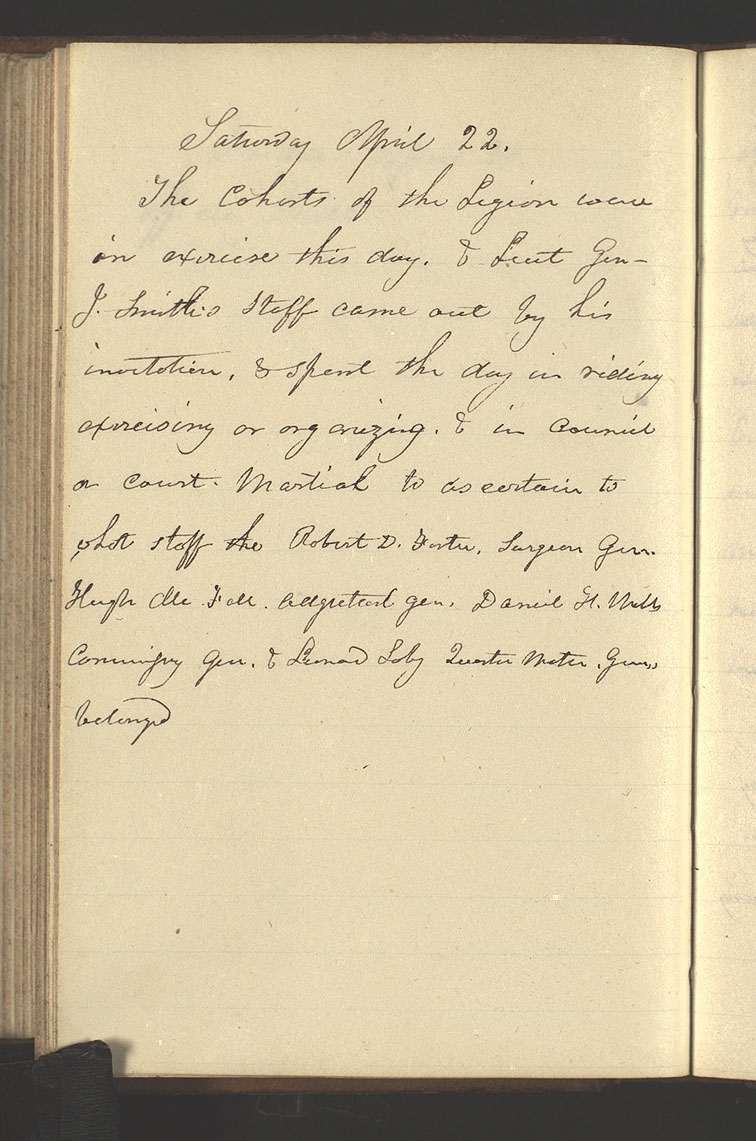 Saturday April 22.
The Cohorts of the Legion were
in exercise this day. & Lieut Gen–
J. Smith's staff came out by his
invitation, & spent the day in riding
exercising or organizing. & in council
a court. Martial to ascertain to
what staff the Robert D. Foster, Surgeon Gen.
Hugh Mc Fall. Adgutant gen. Daniel H. Wells
Commissary Gen. & Leonard Soby Quarter Master. Gen.,
belonged